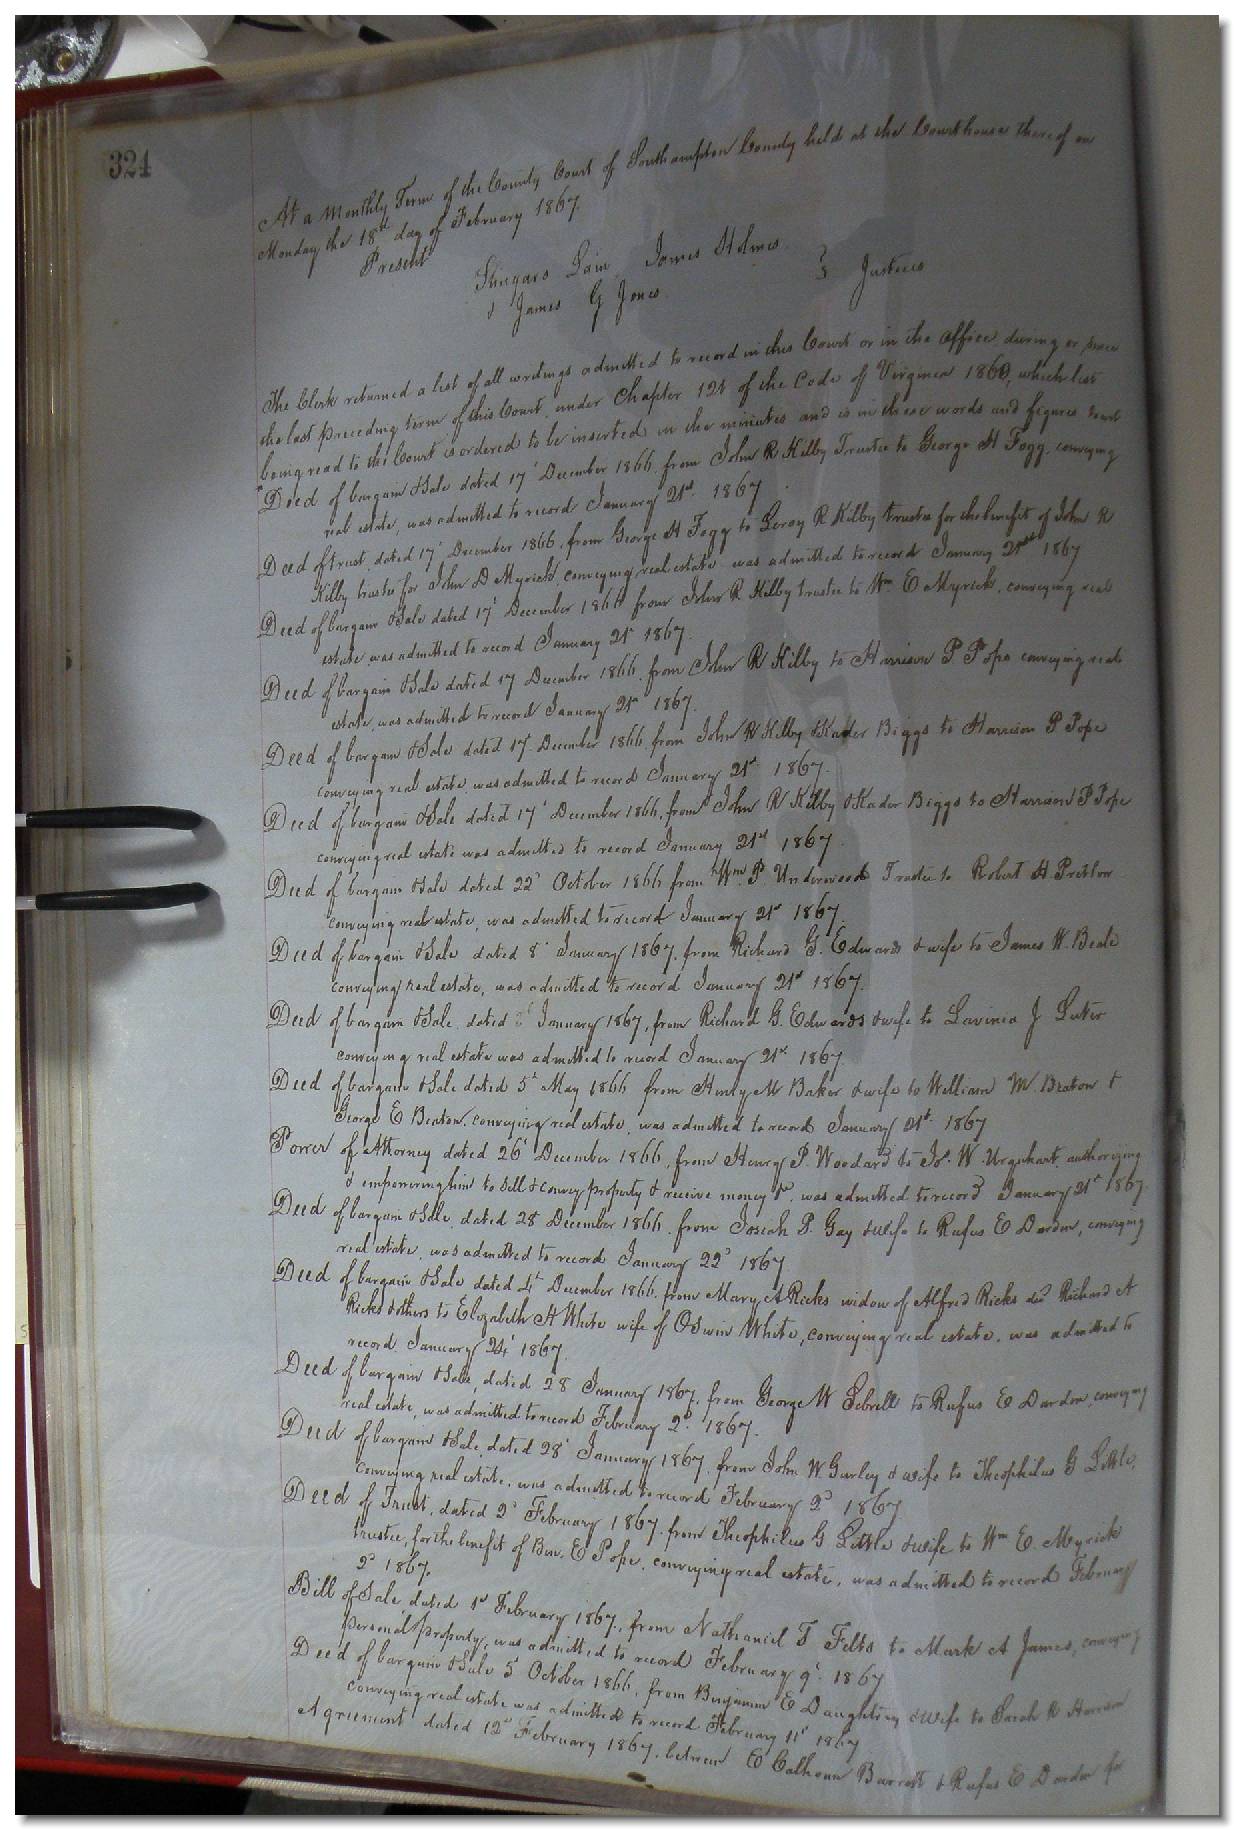 324
At a Monthly Term of the County Court of Southampton County held at the Courthouse thereof on
Monday the 18th day of February 1867.
Present
Lain, James Holmes } Justices
& James G Jones
The Clerk returned a list of all writings admitted to record in this Court or in the office, during or since
the last preceding term of this Court, under Chapter 121 of the Code of Virginia 1860, which list
being read to the Court is ordered to be inserted in the minutes and is in these words and figures towit
"Deed of bargain & Sale dated 17' December 1866, from John R Kilby Trustee to George H Fogg, conveying
real estate, was admitted to record January 21st 1867
Deed of trust, dated 17' December 1866, from George H Fogg to Leroy R Kilby trustee for the benefit of John R
Kilby trustee for John D Myrick, conveying real estate was admitted to record January 21st 1867
Deed of bargain & Sale dated 17' December 1866 from John R Kilby trustee to Wm E Myrick, conveying real
estate was admitted to record January 21st 1867.
Deed of bargain & Sale dated 17 December 1866, from John R Kilby to Harrison P Pope conveying real
estate was admitted to record January 21st 1867.
Deed of bargain & Sale dated 17' December 1866, from John R Kilby & Kader Biggs to Harrison P Pope
conveying real estate, was admitted to record January 21st 1867.
Deed of bargain & Sale dated 17' December 1866, from John R Kilby & Kader Biggs to Harrison P Pope
conveying real estate was admitted to record January 21st 1867.
Deed of bargain & Sale dated 22' October 1866 from Wm P Underwood Trustee to Robert H Pretlow
conveying real estate, was admitted to record January 21st 1867.
Deed of bargain & Sale dated 8' January 1867, from Richard G. Edwards & wife to James W. Beale
conveying real estate, was admitted to record January 21st 1867.
Deed of bargain & Sale, dated January 1867, from Richard G. Edwards & wife to Lavinia J Luter
conveying real estate was admitted to record January 21st 1867.
Deed of bargain & Sale dated 5th May 1866 from Henry M Baker & wife to William M. Beaton &
George E Beaton, conveying real estate, was admitted to record January 21st 1867
Power of Attorney dated 26' December 1866, from Henry P. Woodard to Jos. W. Urquhart, authorizing
& empowering him to sell & convey property & receive money &c, was admitted to record January 21st 1867.
Deed of bargain & Sale, dated 28 December 1866, from Josiah P. Gay & wife to Rufus E Dardon, conveying
real estate, was admitted to record January 22' 1867
Deed of bargain & Sale dated 4th December 1866, from Mary A Ricks widow of Alfred Ricks decd Richard A
Ricks & others to Elizabeth A White wife of Oswin White, conveying real estate, was admitted to
record January 24' 1867.
Deed of bargain & Sale, dated 28 January 1867, from George W Sebrell to Rufus E Dardon, conveying
real estate, was admitted to record February 2d 1867.
Deed of bargain & Sale, dated 28' January 1867, from John W Gurley & wife to Theophilus G Little,
conveying real estate, was admitted to record February 2d 1867
Deed of Trust, dated 2' February 1867, from Theophilus G Little & wife to Wm E. Myrick
trustee, for the benefit of Ben. E Pope, conveying real estate, was admitted to record February
2d 1867.
Bill of Sale dated 1st February 1867, from Nathaniel T Felts to Mark A James, conveying
personal property, was admitted to record February 9' 1867
Deed of bargain & Sale 5' October 1866, from Benjamin E Daughtrey & wife to Sarah R Harrison
conveying real estate was admitted to record February 11' 1867
Agreement dated 12' February 1867, between E Calhoun Barrett & Rufus E Dardon for